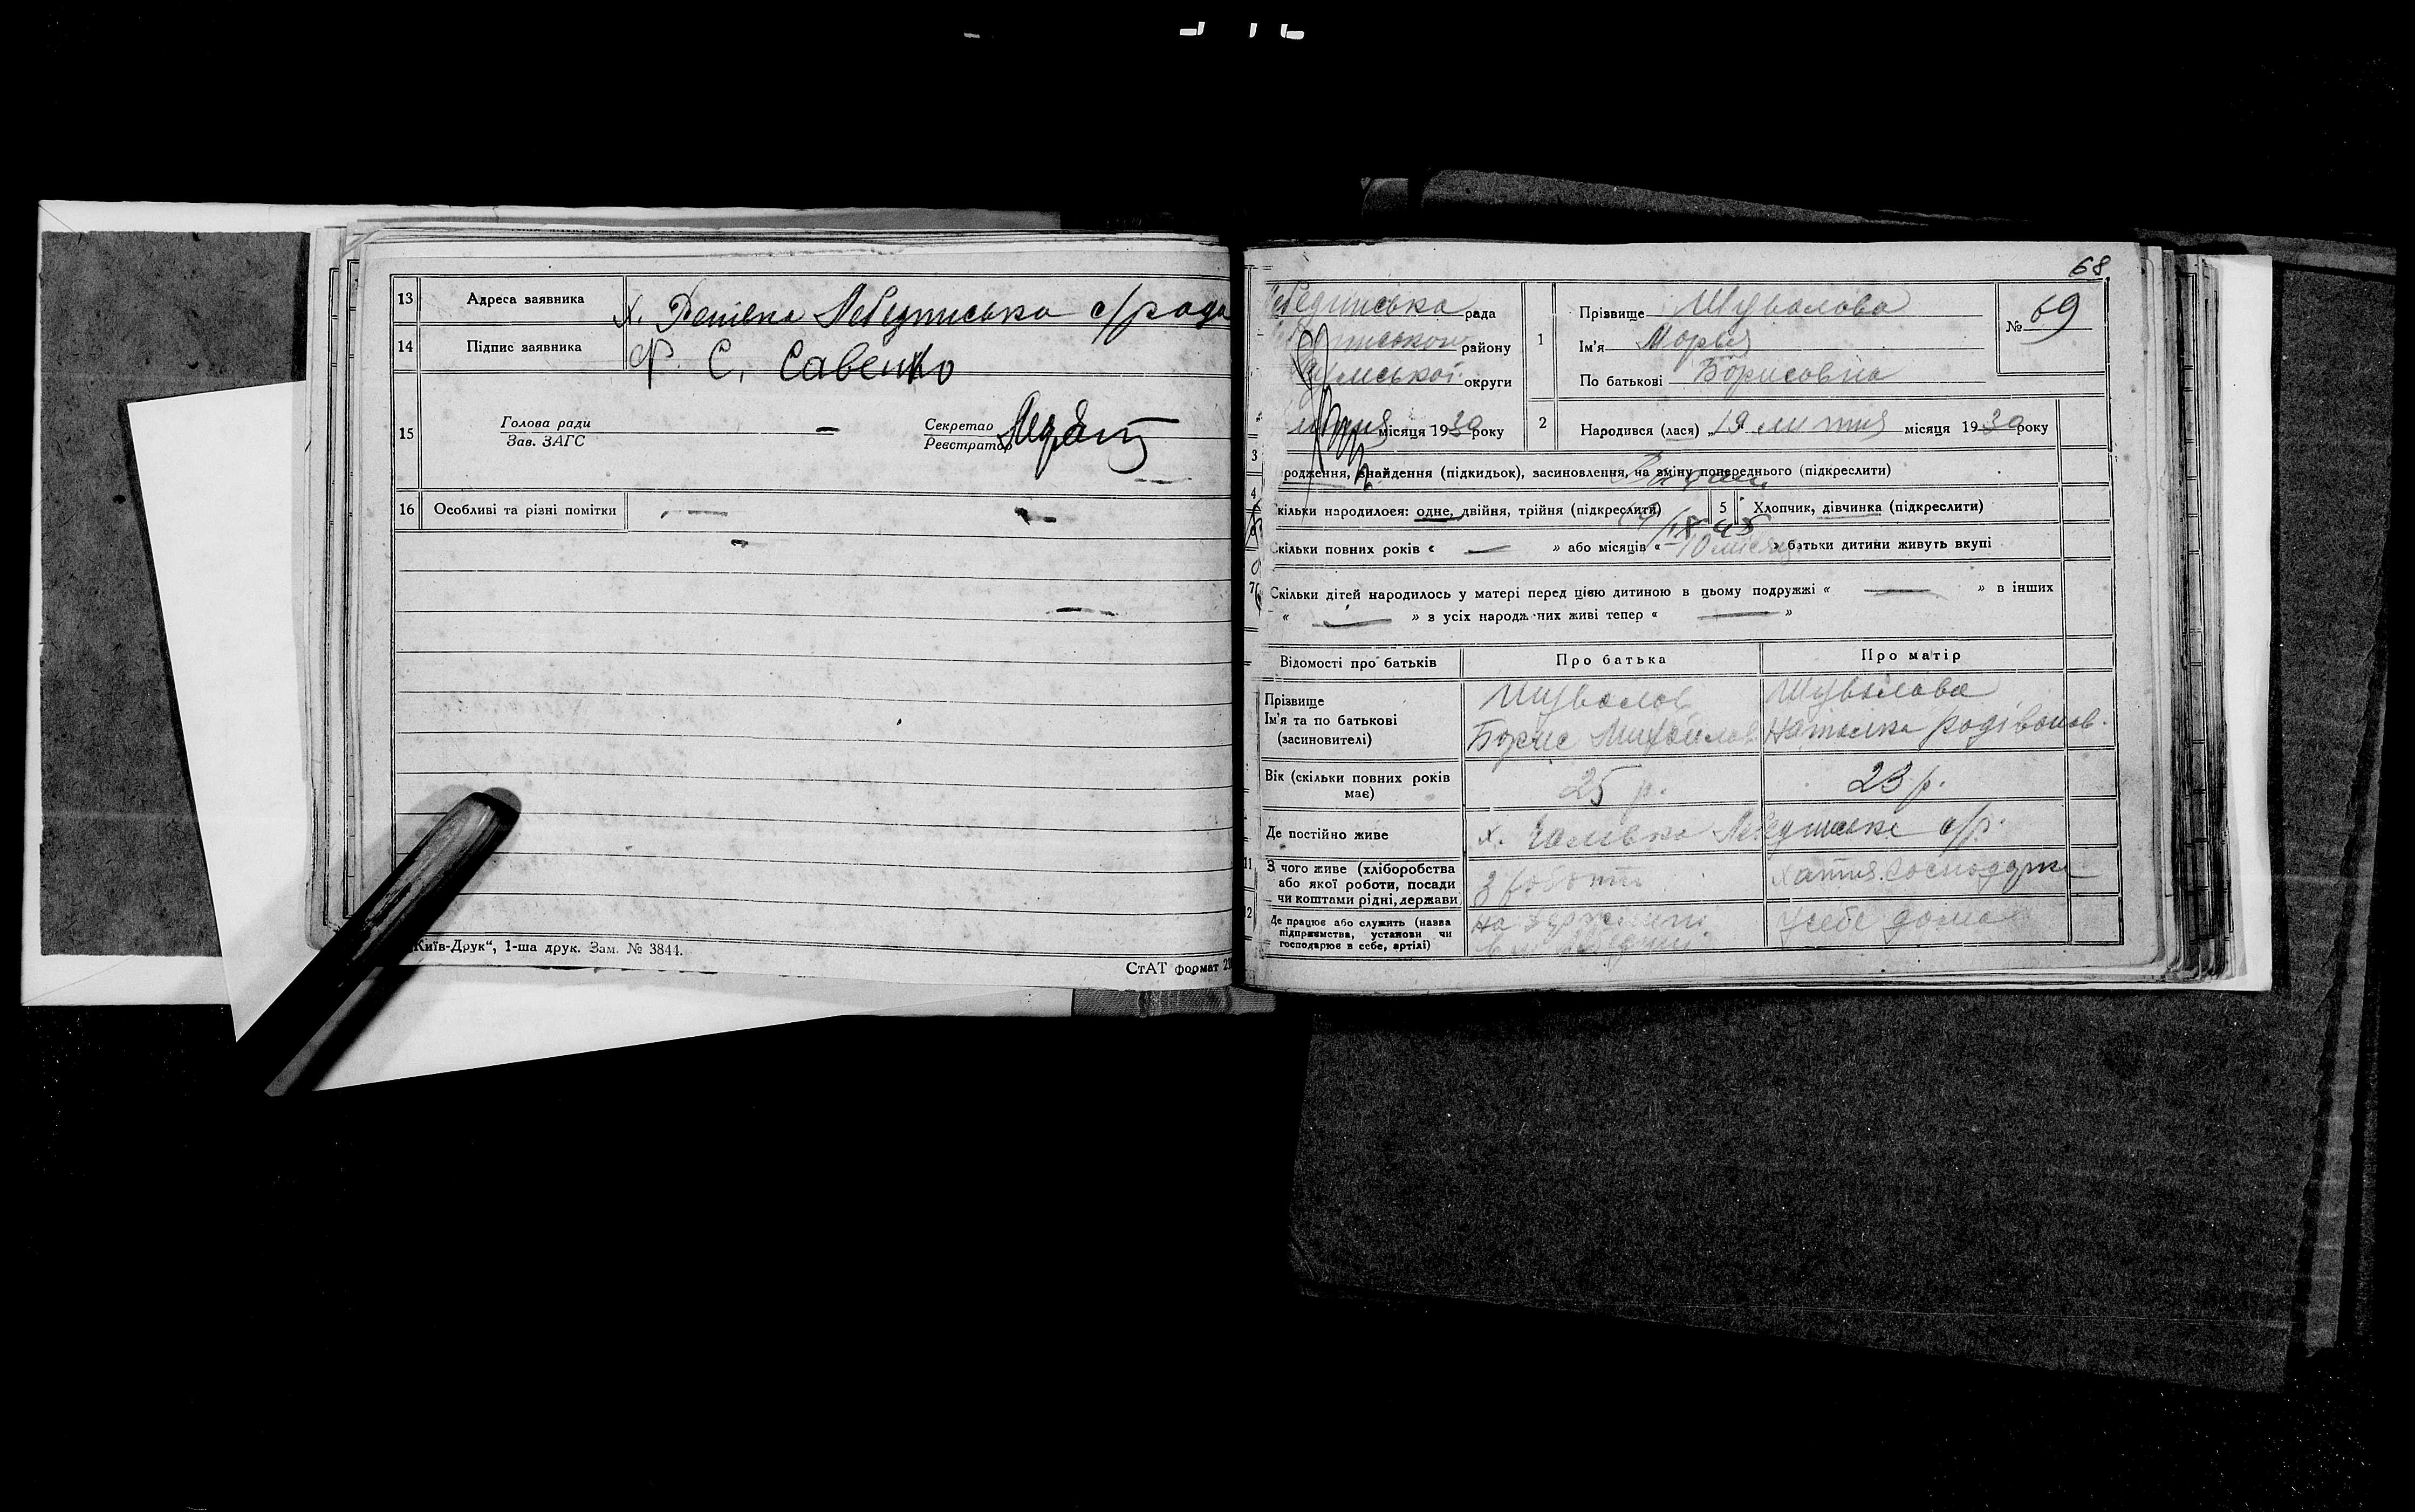 13 Адреса заявника х. Лебединська с/рада
14 Підпис заявника Ф. С. Савенко
15 Голова ради
Зав. ЗАГС —
Секретар
Реєстратор
16 Особливі та різні помітки —
„Київ-Друк“, 1-ша друк. Зам. № 3844.
СтАТ формат
68
Лебединська рада
району
Сумської округи
1 Прізвище Шувалова
Ім'я Марья
По батькові Борисовна
№ 69
лютня місяця 1930 року
2 Народився (лася) „19 лютня місяця 1930 року
3 родження, знайдення (підкидьок), засиновлення, на зміну попереднього (підкреслити)
4 кільки народилося: одне, двійня, трійня (підкреслити)
5 Хлопчик, дівчинка (підкреслити)
Скільки повних років « — » або місяців « 10 місяц » батьки дитини живуть вкупі
7 Скільки дітей народилось у матері перед цією дитиною в цьому подружжі « — » в інших
« — » з усіх народж них живі тепер « — »
Відомості про батьків Про батька Про матір
Прізвище Шувалов Шувалова
Ім'я та по батькові
(засиновителі) Борис Михайлов Наталка Родівонов.
Вік (скільки повних років
має) 25 р. 23 р.
Де постійно живе х. Лебединська с/р.
11 З чого живе (хліборобства
або якої роботи, посади
чи коштами рідні, держави З роботи Хатня господарка
12 Де працює або служить (назва
підприємства, установи чи
господарює в себе, артілі) На у себе дома